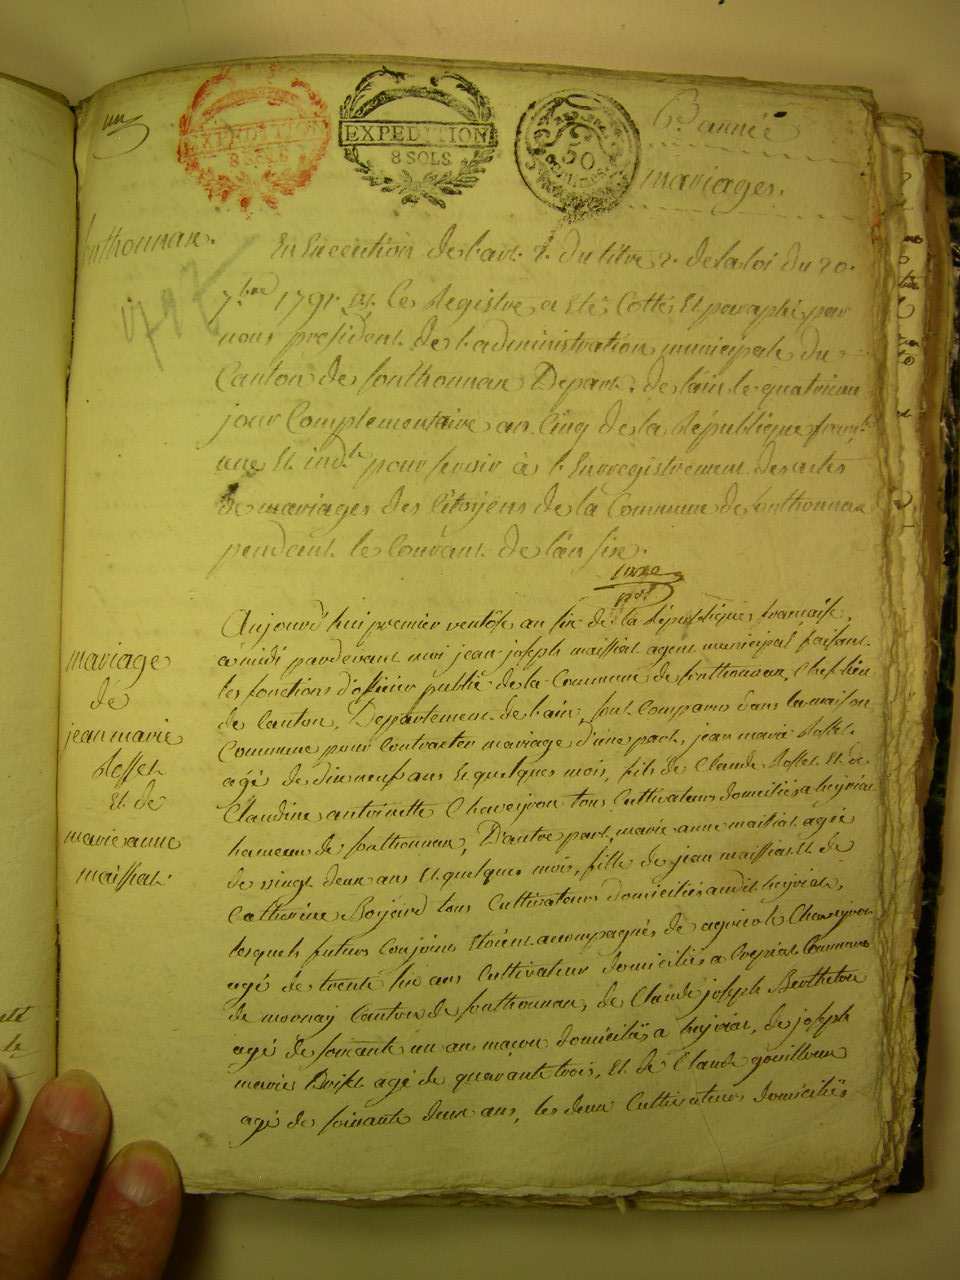 un
EXPEDITION
8 SOLS
EXPEDITION
8 SOLS
50
6e année
mariages.
fonthonnan.
1797
En Execution de l'art. 2. du titre 2. de la loi du 20.
7.bre 1791. Ce Registre a Eté Cotté Et paraphé par
nous president de l'administration municipale du
Canton de fonthonnan Depart. de l'ain le quatrieme
jour Complementaire an Cinq de la République
une Et ind.le pour servir à l'Enregistrement des actes
de mariages des Citoyens de la Commune de fonthonnan
pendant le Courant de l'an six.
mariage
de
jean marie
Rosset
Et de
marie anne
maissiat.
Aujourd'hui premier ventôse an six de la République française,
a midi pardevant moi jean joseph maissiat agent municipal faisant
les fonctions d'officier public de la Commune de fonthonnan, Chef lieu
de Canton, Departement de l'ain, sont Comparus dans la maison
Commune pour Contracter mariage d'une part, jean marie Rosset
agé de dix neuf ans Et quelques mois, fils de Claude Rosset Et de
Claudine antoinette Chaveyron tous Cultivateurs domiciliés a heyriat
hameau de fonthonnan, D'autre part, marie anne maissiat agée
de vingt deux ans Et quelques mois, fille de jean maissiat Et de
Catherine tous Cultivateurs domiciliés audit heyriat,
lesquels futurs Conjoins Etoient accompagnés de agricole Chaveyron
agé de trente six ans Cultivateur domicilié a Crépiat Commune
de mornay Canton de fonthonnan, de Claude joseph Berthelon
agé de soixante un an maçon domicilié a heyriat, de joseph
marie agé de quarante trois, Et de Claude gouilloux
agé de soixante deux ans, les deux Cultivateurs domiciliés